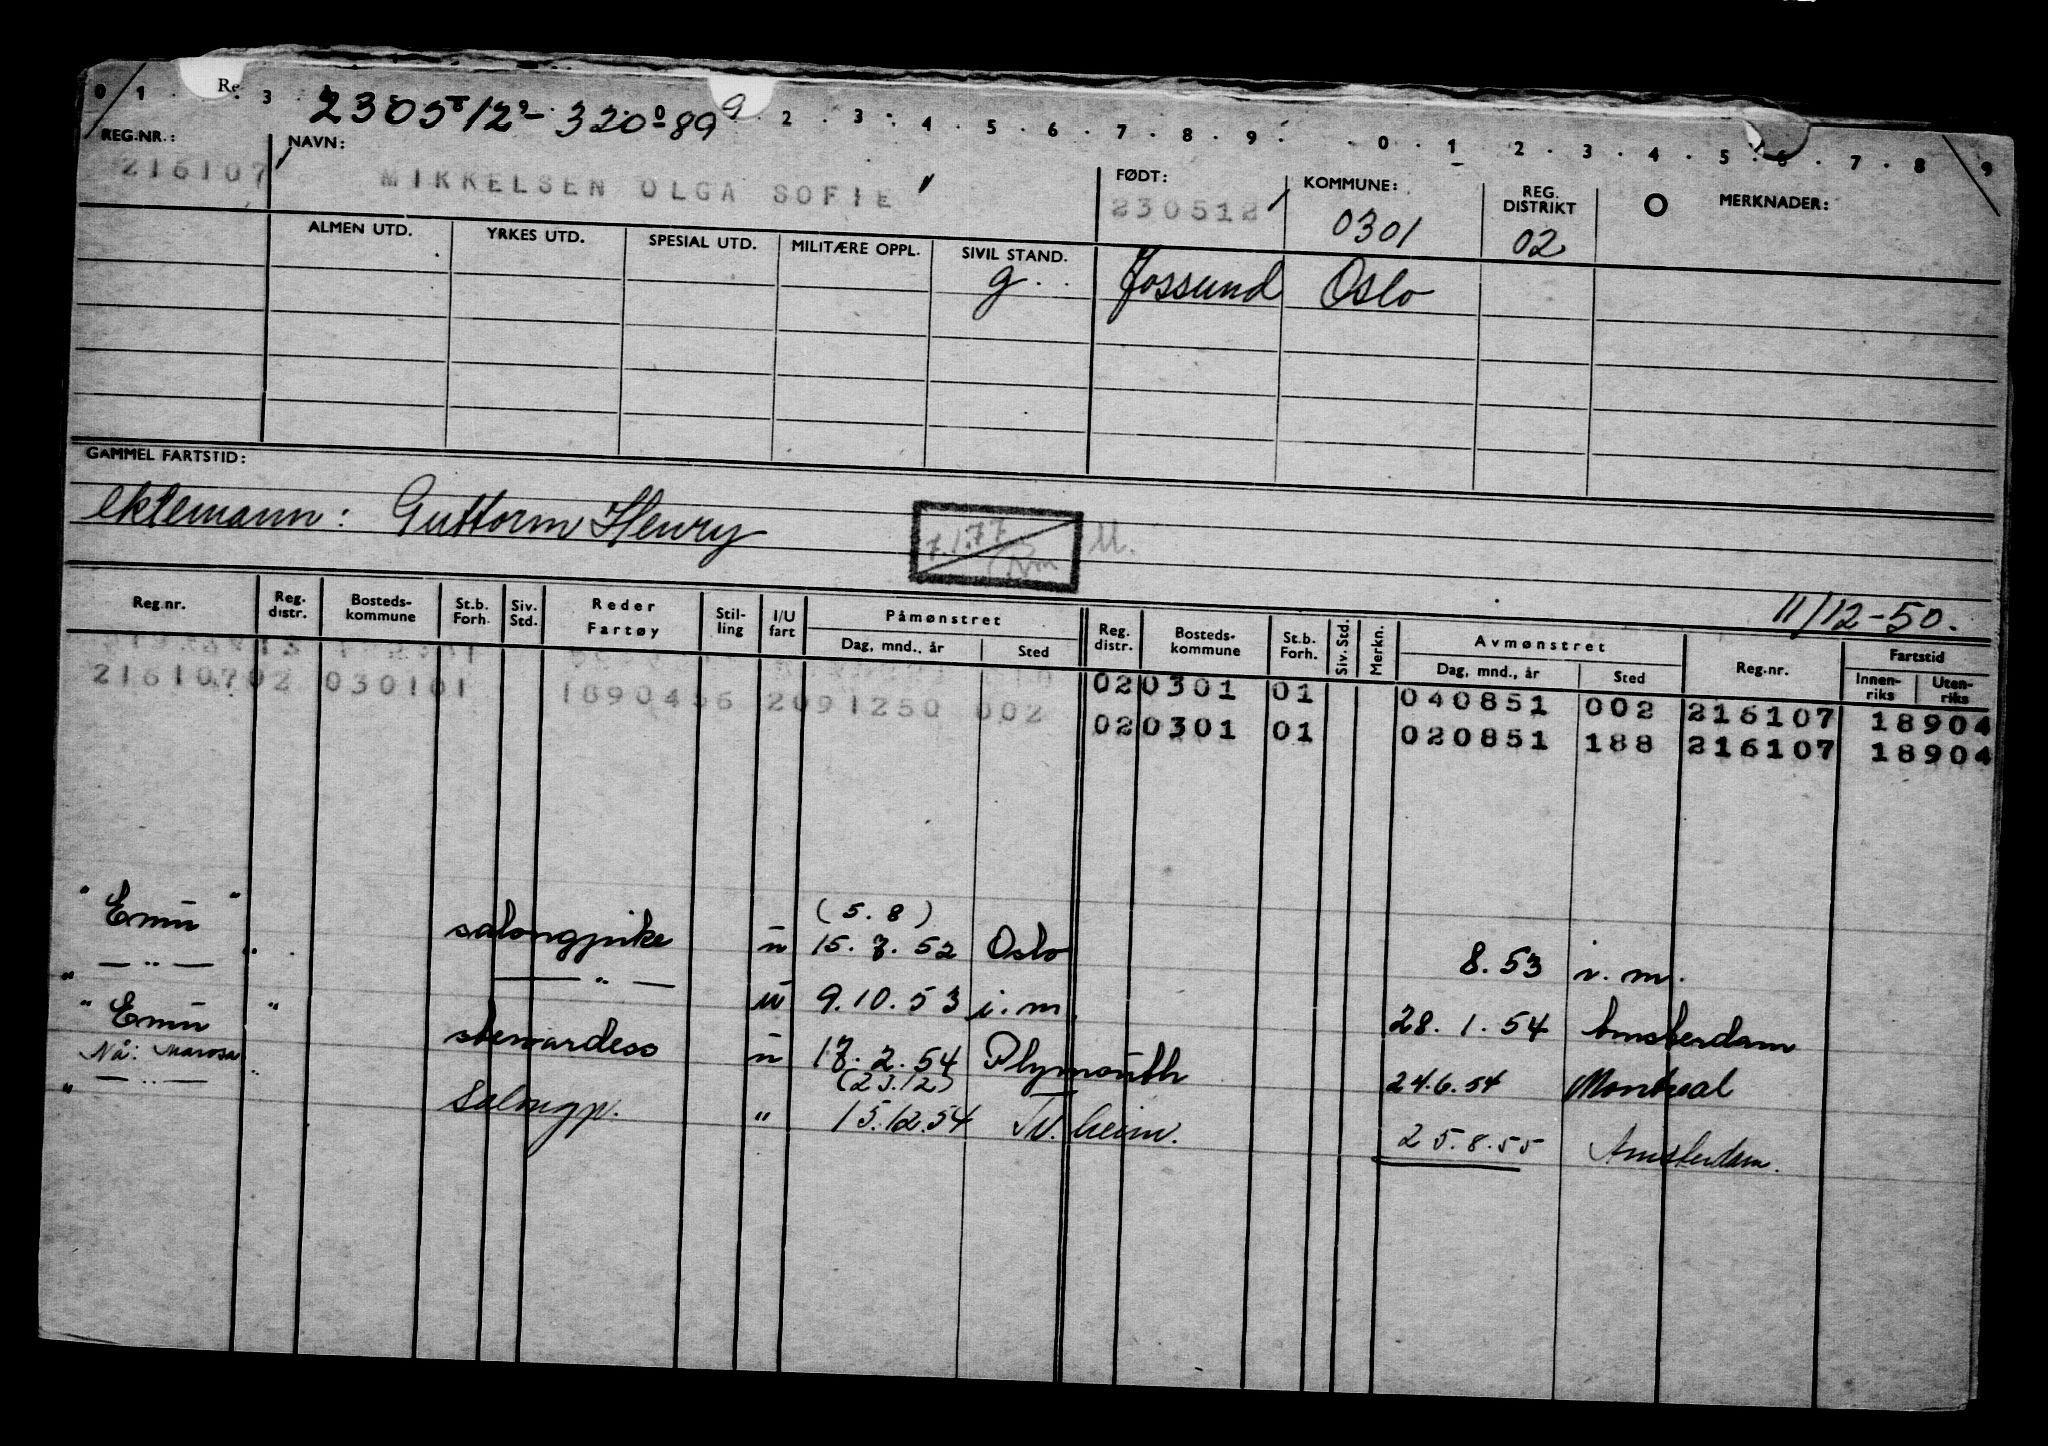 0 1 Re 3 2 3 4 5 6 7 8 9 0 1 2 3 4 5 6 7 8 9
230512-32089
REG.NR.: NAVN: FØDT: KOMMUNE: REG. DISTRIKT MERKNADER:
216107 MIKKELSEN OLGA SOFIE 230512 0301 02
ALMEN UTD. YRKES UTD. SPESIAL UTD. MILITÆRE OPPL. SIVIL STAND.
g. Jossund Oslo
GAMMEL FARTSTID:
ektemann: Guttorm Henry
7.1.77 M.
11/12-50.
Reg.nr. Reg. distr. Bosteds-kommune St.b. Forh. Siv. Std. Reder Fartøy Stil-ling I/U fart Påmønstret Dag, mnd., år Sted Reg. distr. Bosteds-kommune St.b. Forh. Siv. Std. Merkn. Avmønstret Dag, mnd., år Sted Reg.nr. Fartstid Innen-riks Uten-riks
216107 02 0301 01 1890456 2 091250 002 02 0301 01 040851 002 216107 18904
02 0301 01 020851 188 216107 18904
(5.8)
"Emu" salongpike u 15.7.52 Oslo 8.53 i.m.
" —"— " —"— u 9.10.53 i.m. 28.1.54 Amsterdam
"Emu" stewardess u 17.2.54 Plymouth 24.6.54 Montreal
Nå: Marosa (23.12)
" —"— " Salongp. " 15.12.54 Tr.heim. 25.8.55 Amsterdam.